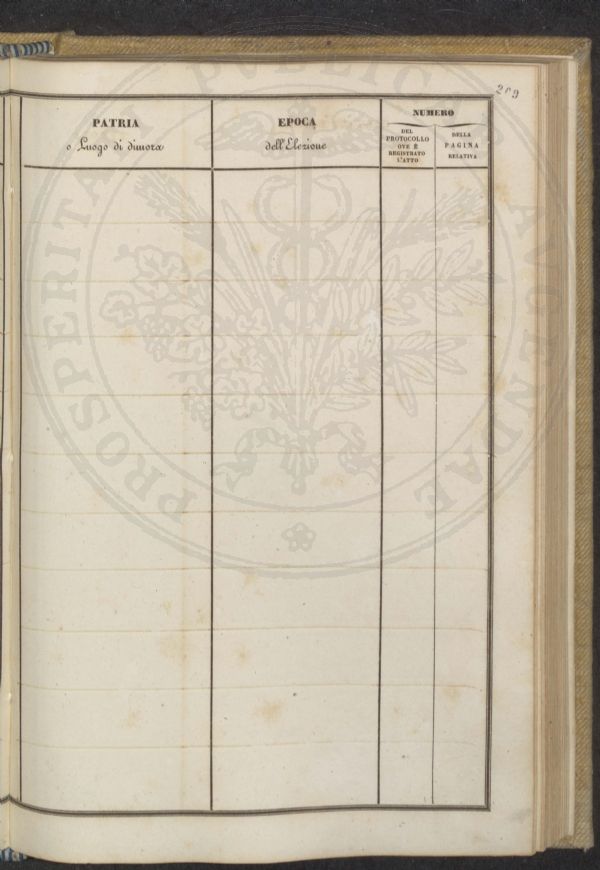 209
PATRIA
o Luogo di dimora
EPOCA
dell'Elezione
NUMERO
DEL
PROTOCOLLO
OVE È
REGISTRATO
L'ATTO
DELLA
PAGINA
RELATIVA
PROSPERITATI PUBLICAE AUGENDAE